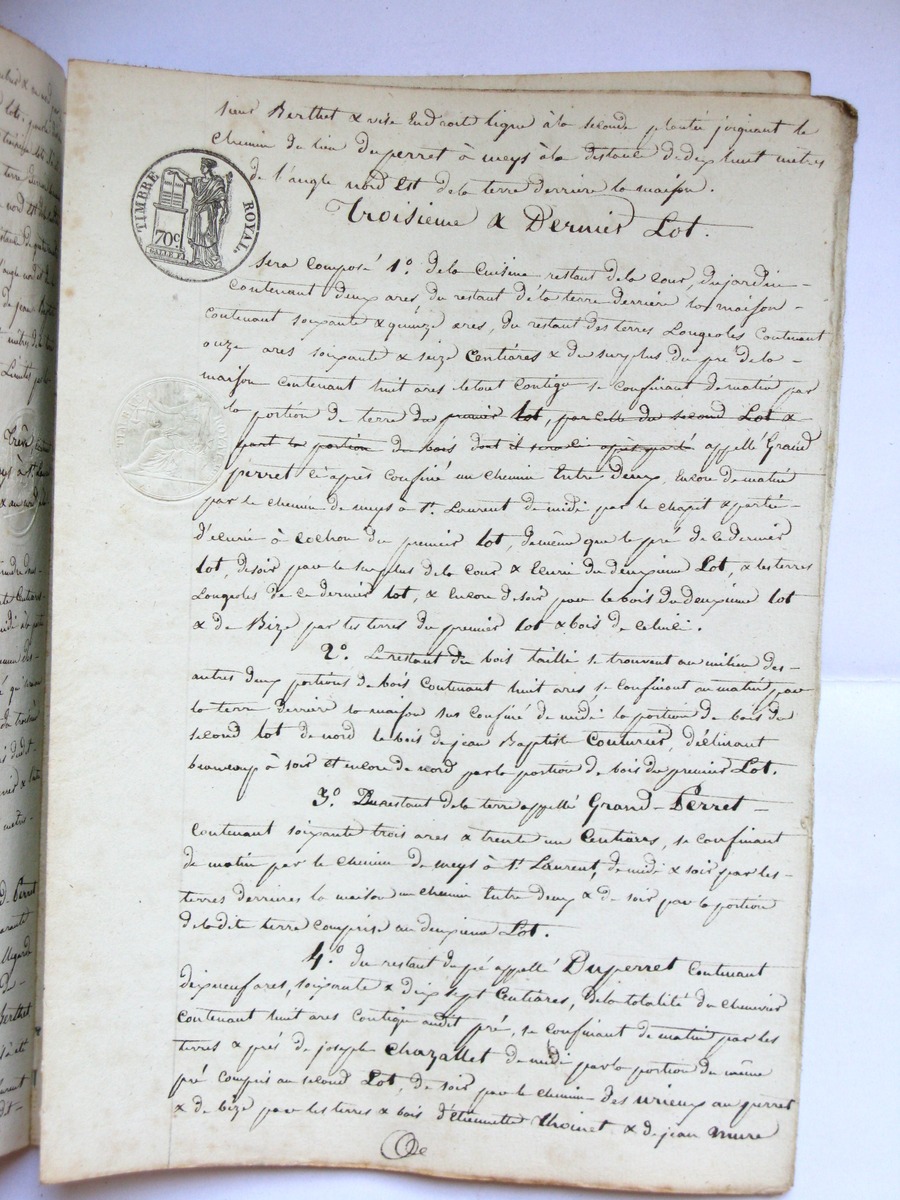 sieur Berthet & vise Endroit ligne à la seconde plantée joignant le
chemin du lieu du perret à meys à la distance de dix huit mètres
de l'angle nord Est de la terre derrière la maison.
TIMBRE ROYAL
70c
Troisieme & Dernier Lot.
Sera Composé 1o. de la Cuisine restant de la Cour, du jardin
Contenant deux ares, du restant de la terre derrière la maison
Contenant soixante & quinze ares, du restant des terres Longeoles Contenant
onze ares soixante & seize Centiares & du surplus du pré de la
maison Contenant huit ares le tout Contigu se Confinant de matin par
la portion de terre du premier lot, par celle du second Lot &
part la portion du bois dont il sera ci après parlé appellé Grand
perret ci après Confiné un chemin Entre deux, Encore de matin
par le chemin de meys à St. Laurent de midi par le chapit & partie
d'écurie à cochon du premier lot, de même que le pré de ce dernier
lot, de soir par le surplus de la Cour & Ecurie du deuxieme Lot, & les terres
Longeoles de ce dernier lot, & Encore de soir par le bois du deuxieme lot
& de Bize par les terres du premier lot & bois de celui ci.
2o. Le restant du bois taillé se trouvent au milieu des
autres deux portions de bois Contenant huit ares se Confinant au matin par
la terre derrière la maison sus Confiné de midi la portion de bois du
second lot de nord le bois de jean Baptiste Couturier, déclinant
beaucoup à soir et encore de nord par la portion de bois du premier Lot.
3o. Du restant de la terre appellé Grand Perret
Contenant soixante trois ares & trente un Centiares, se Confinant
de matin par le chemin de meys à St. Laurent, de midi & soir par les
terres derrieres la maison un chemin Entre deux & de soir par la portion
de la dite terre Comprise au deuxieme Lot.
4.o du restant de pré appellé Duperret Contenant
dix neuf ares, soixante & dix sept Centiares, de la totalité du chenevier
Contenant huit ares Contigu audit pré, se Confinant de matin par les
terres & prés de joseph Chazallet de midi par la portion du même
pré Compris au second Lot, de soir par le chemin des urieux au perret
& de bize par les terres & bois d'étiennette Thoinet & de jean mure